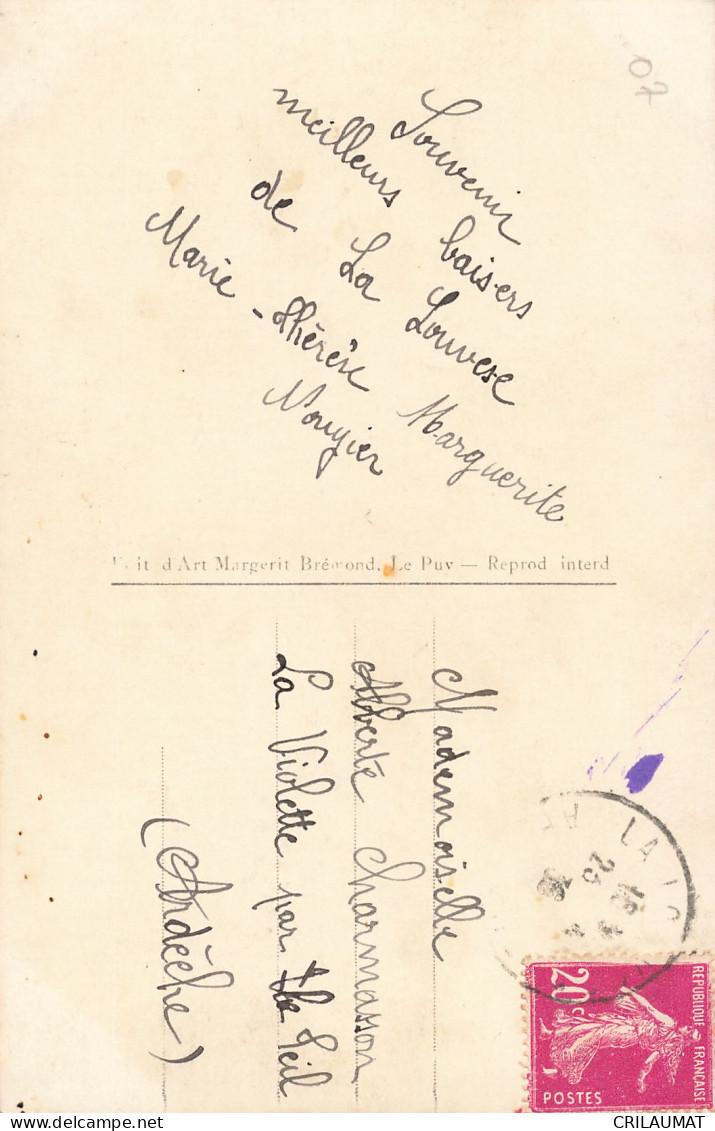 07
Souvenir
meilleurs baisers
de La Louvesc
Marie-Thérèse Marguerite
Nougier
d'Art Margerit Brémond, Le Puy — Reprod interd
Mademoiselle
Alberte Charmasson
La Violette par Le Teil
(Ardèche)
LA LO
18
25
20c
REPUBLIQUE FRANÇAISE
POSTES
CRILAUMAT